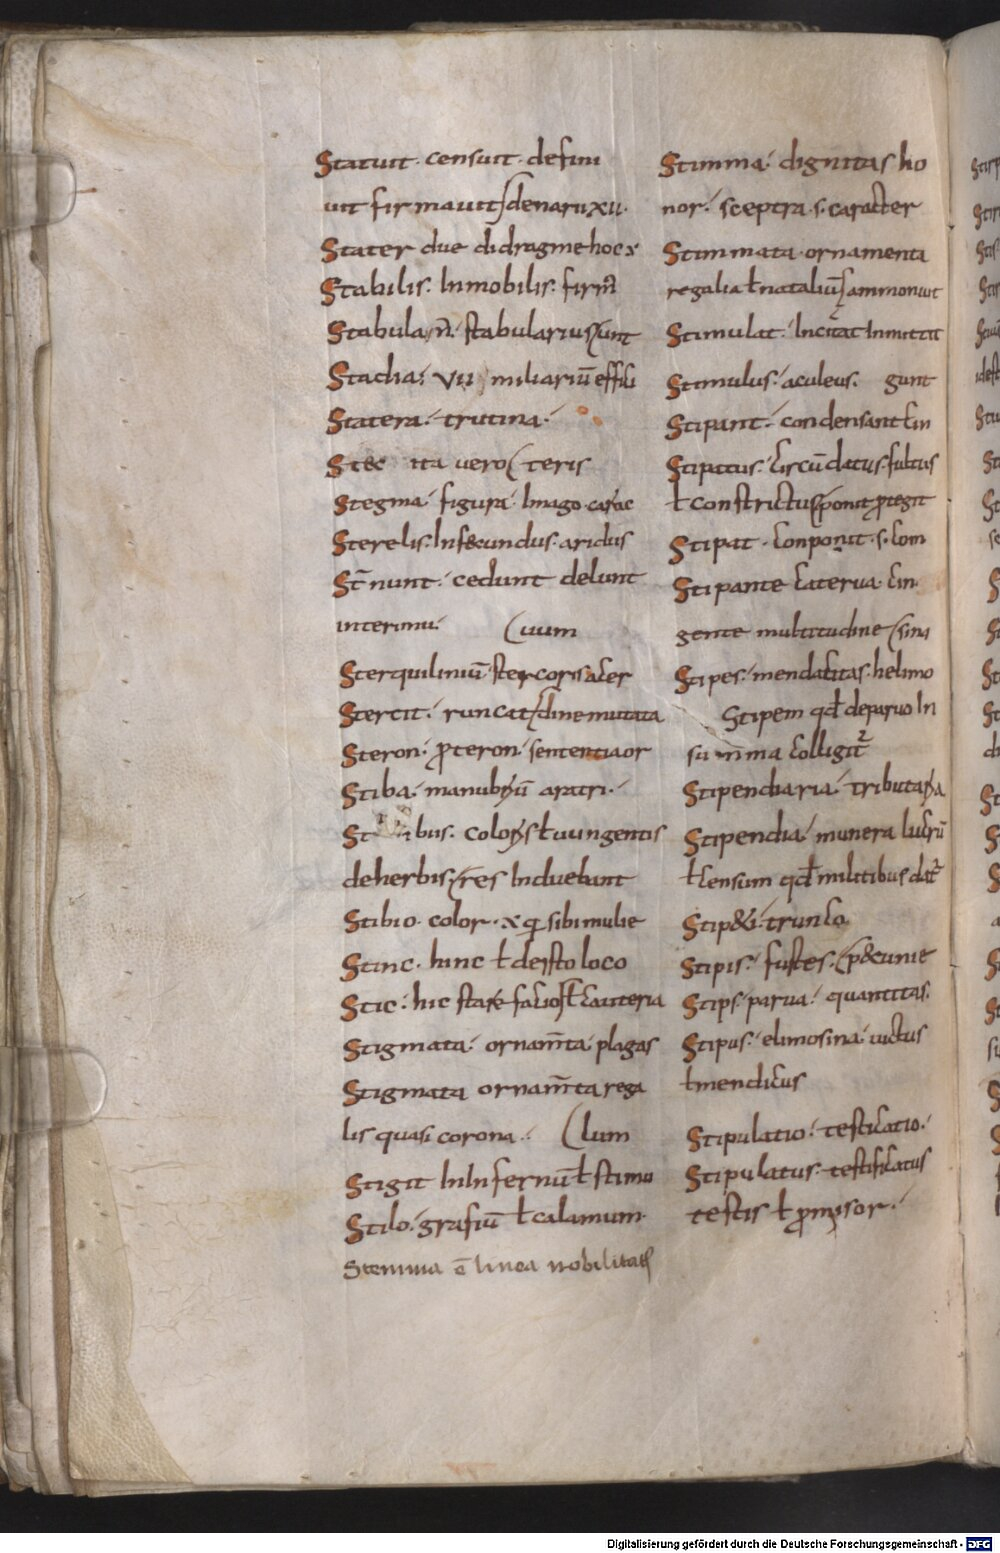 Statuit · censuit · defini
uit firmauit denarii xii ·
Stater due didragme hoc ÷
Stabilis · Inmobilis · firm̄
Stabula n̄ · stabularius sunt
Stadia · VII miliariū effi
Statera · trutina ·
ita uero ( teris
Stegma · figura · Imago · carac
Sterelis · Infecundus · aridus
St̄nunt · cedunt delunt
interimu · ( uum
Sterquiliniū · stercoris acer
Stertit · runcat dine mutata
Steron · ꝓteron · sententia or
Stiba · manubriū aratri ·
bus · coloris ƚ uungentis
de herbis res Induebant
Stibio · color · sibi mulie
Stinc · hinc ƚ de isto loco
Stic · hic stare facio ƚ cauteria
Stigmata · ornam̄ta · plagas
Stigmata ornam̄ta rega
lis quasi corona · ( lum
Stigit In Infernū ƚ stimu
Stilo · grafiū ƚ calamum ·
Stemma ē linea nobilitatis
Stimma · dignitas ho
nor · sceptra · s · caracter
Stimmata · ornamenta
regalia ƚ nataliū ammoniut
Stimulat · Incitat Inmittit
Stimulus · aculeus · gunt
Stipant · condensant ƚ in
Stipatus · circūdatus · fultus
ƚ constrictus ponit ꝓtegit
Stipat · conponit · s · com
Stipante caterua · cin
gente multitudine ( sina
Stipes · mendacitas · helimo
Stipem qđ de paruo In
summa colligit᷑
Stipendiaria · tributaria
Stipendia · munera lucrū
ƚ censum qđ militibus dat᷑
Stip& · trunco
Stipis · fustes · ( p&cunie
Stips · parua · quantitas ·
Stipus · elimosina · uictus
ƚ mendicus
Stipulatio · testicatio ·
Stipulatus · testificatus
testis ƚ ꝓmisor ·
Digitalisierung gefördert durch die Deutsche Forschungsgemeinschaft - DFG